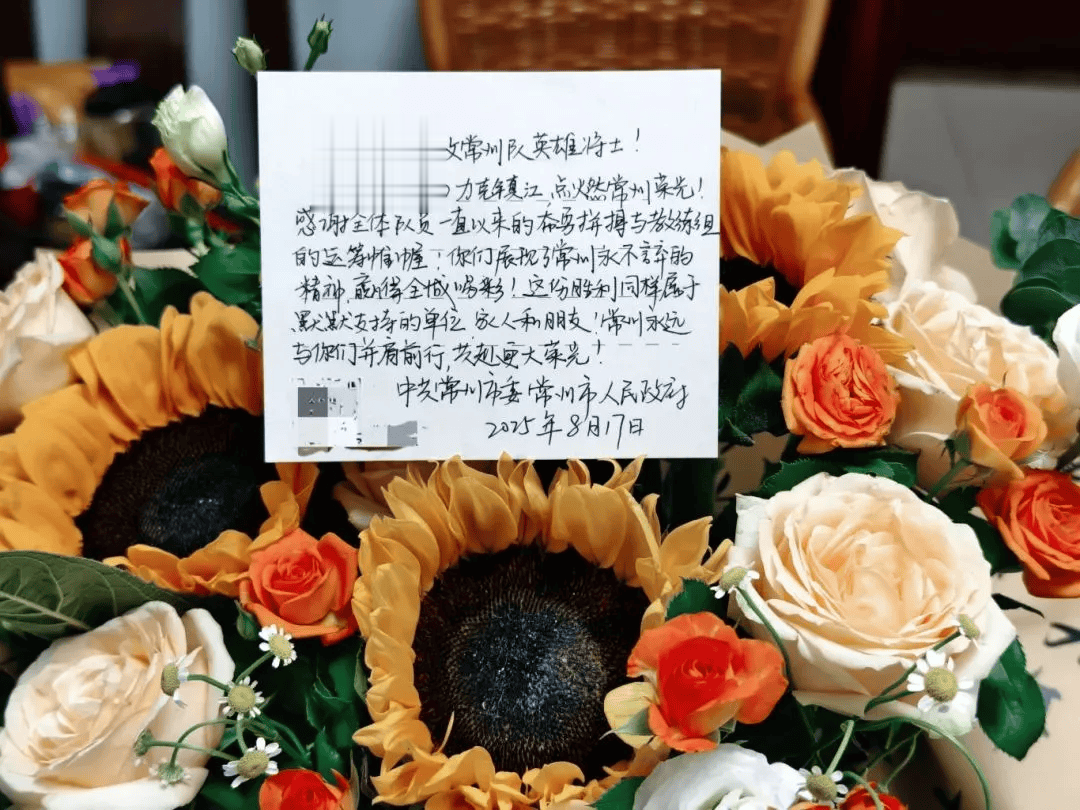 攵常州队英雄将士！
力克镇江，点燃常州荣光！
感谢全体队员一直以来的奋勇拼搏与教练组
的运筹帷幄！你们展现了常州永不言弃的
精神，赢得全城喝彩！这份胜利同样属于
默默支持的单位、家人和朋友！常州永远
与你们并肩前行，共赴更大荣光！
中共常州市委 常州市人民政府
2025年8月17日